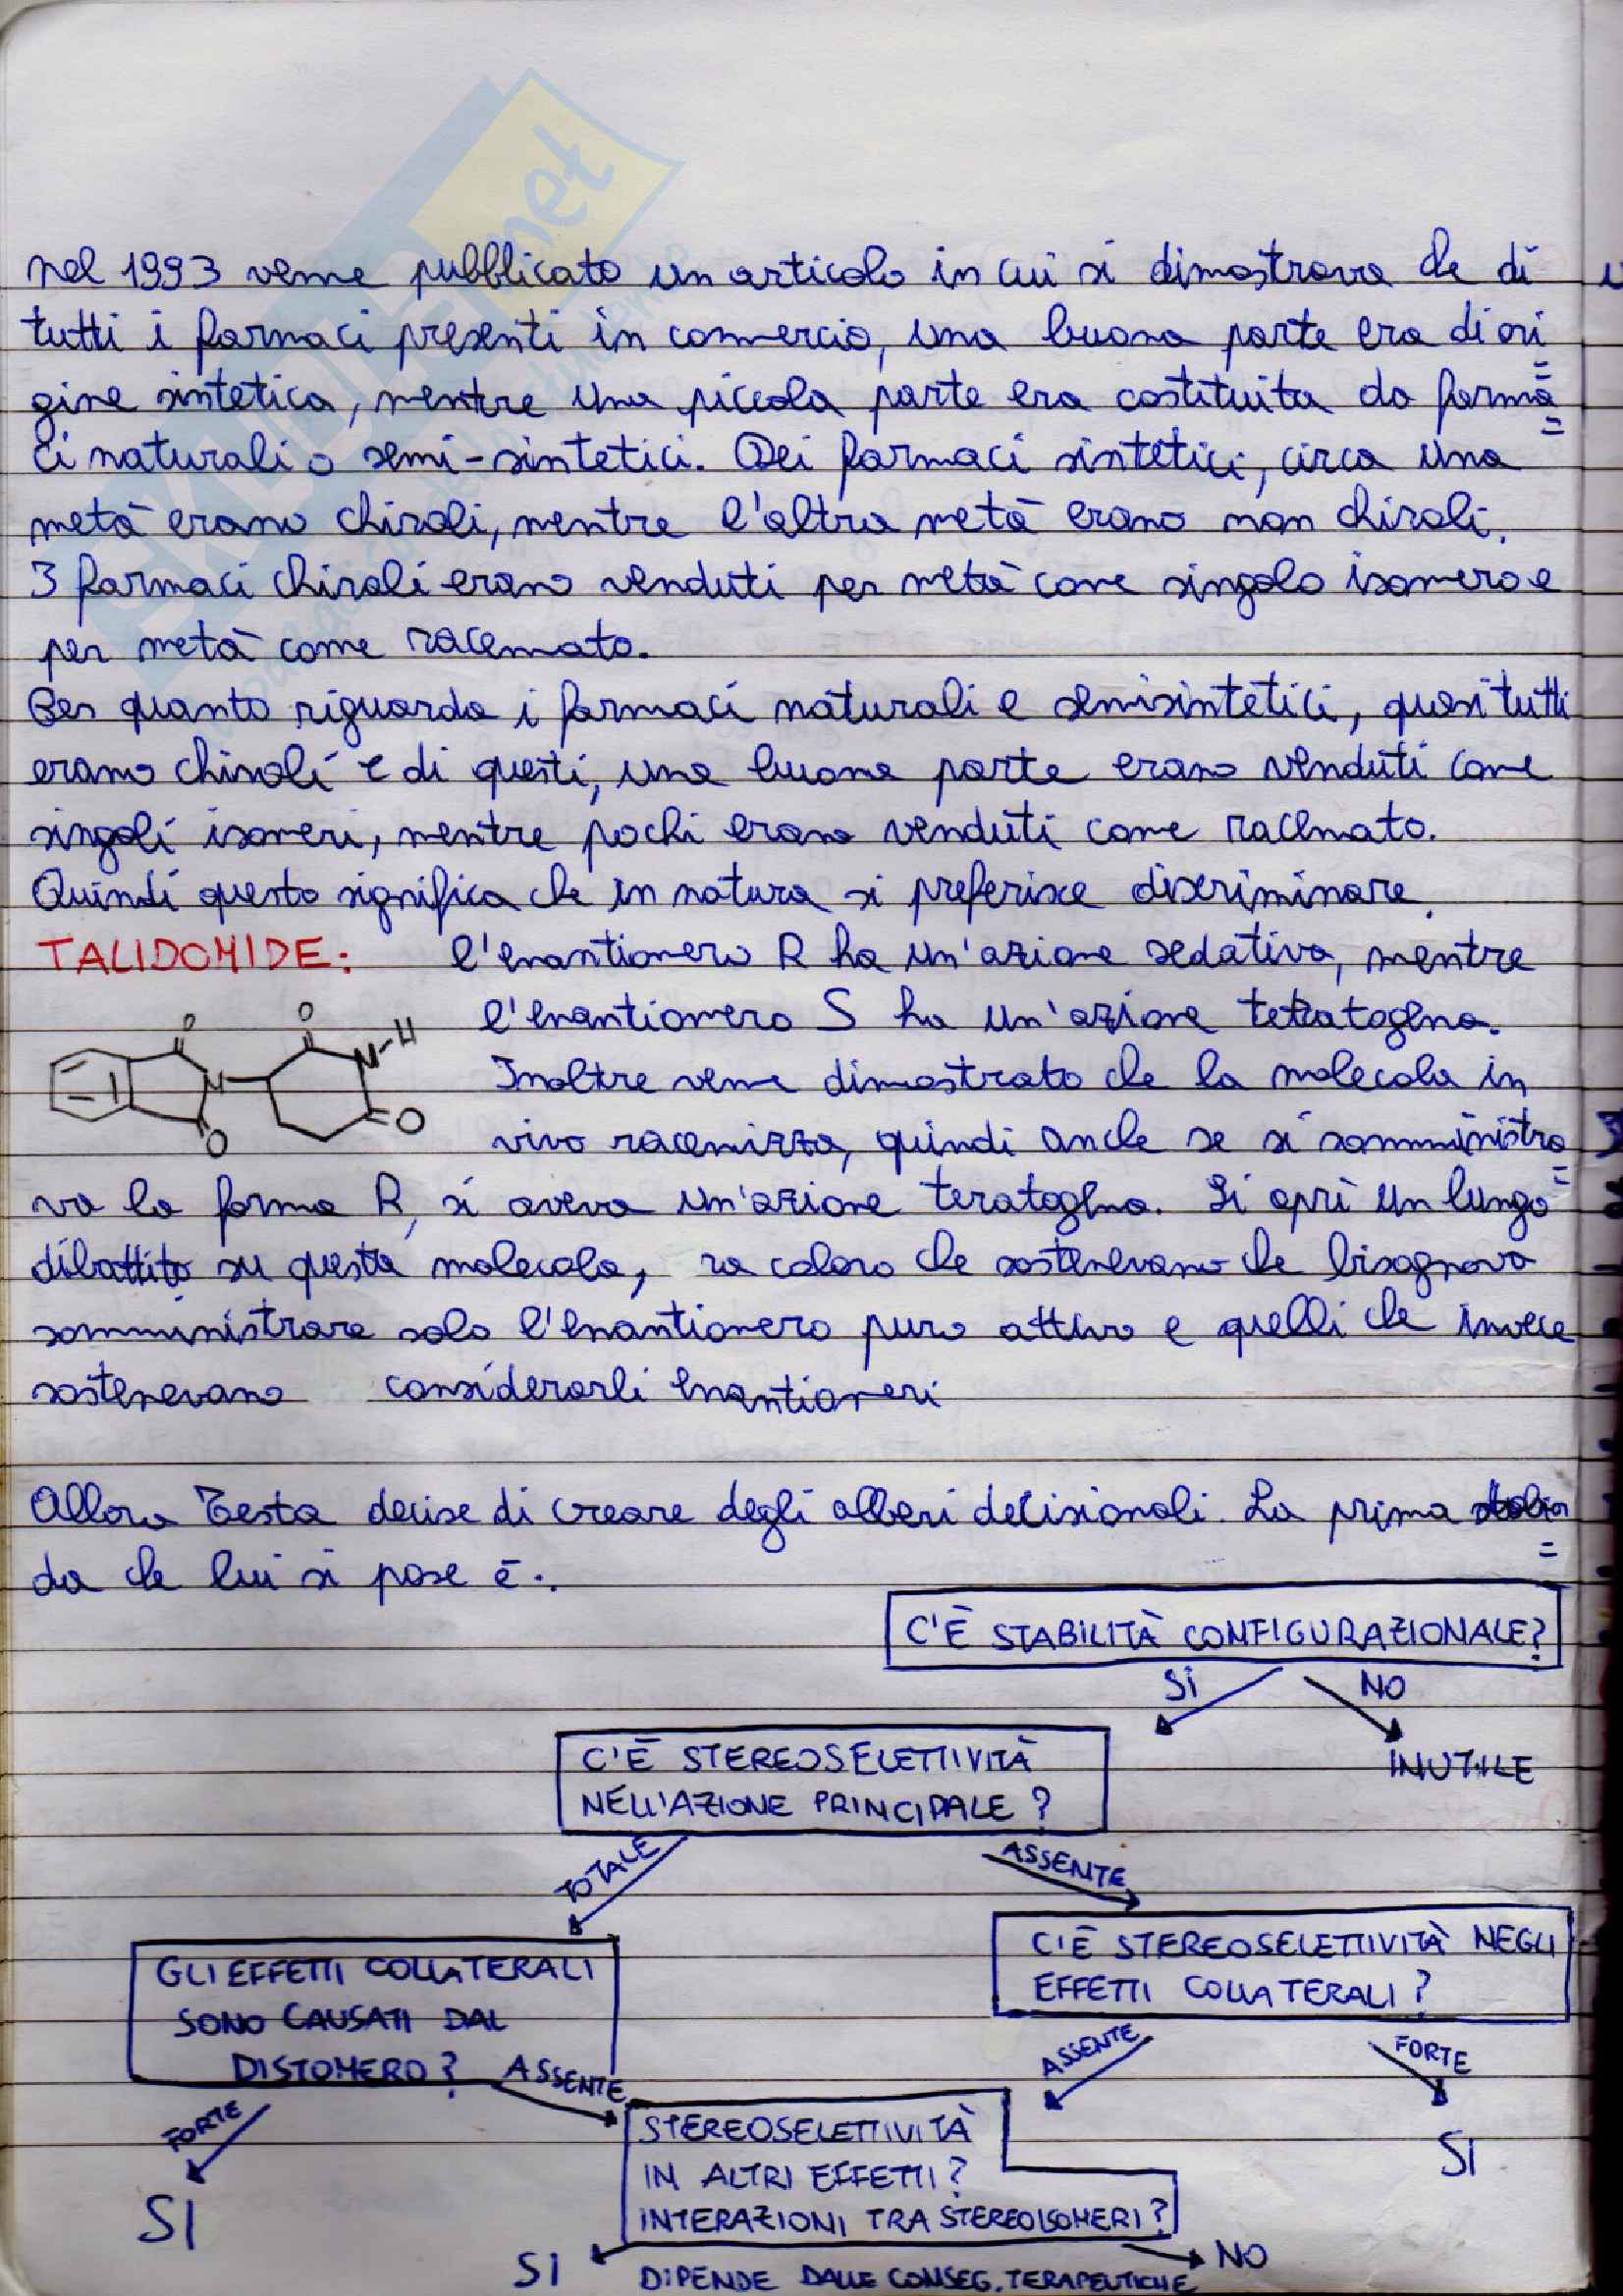 nel 1993 venne pubblicato un articolo in cui si dimostrava che di
tutti i farmaci presenti in commercio, una buona parte era di ori
gine sintetica, mentre una piccola parte era costituita da farma
ci naturali o semi-sintetici. Dei farmaci sintetici, circa una
metà erano chirali, mentre l'altra metà erano non chirali.
I farmaci chirali erano venduti per metà come singolo isomero e
per metà come racemato.
Per quanto riguarda i farmaci naturali e semisintetici, quasi tutti
erano chirali e di questi, una buona parte erano venduti come
singoli isomeri, mentre pochi erano venduti come racemato.
Quindi questo significa che in natura si preferisce discriminare.
TALIDOMIDE: l'enantiomero R ha un'azione sedativa, mentre
l'enantiomero S ha un'azione teratogena.
Inoltre venne dimostrato che la molecola in
vivo racemizza, quindi anche se si somministra
va la forma R, si aveva un'azione teratogena. Si aprì un lungo
dibattito su questa molecola, ra coloro che sostenevano che bisognava
somministrare solo l'enantiomero puro attivo e quelli che invece
sostenevano considerarli enantiomeri
O
O
N-H
N
O
O
Allora Testa decise di creare degli alberi decisionali. La prima
da che lui si pose è:
C'È STABILITÀ CONFIGURAZIONALE?
SI NO
C'È STEREOSELETTIVITÀ
NELL'AZIONE PRINCIPALE?
INUTILE
TOTALE ASSENTE
GLI EFFETTI COLLATERALI
SONO CAUSATI DAL
DISTOMERO?
C'È STEREOSELETTIVITÀ NEGLI
EFFETTI COLLATERALI?
FORTE ASSENTE ASSENTE FORTE
SI
STEREOSELETTIVITÀ
IN ALTRI EFFETTI?
INTERAZIONI TRA STEREOISOMERI?
SI
SI NO
DIPENDE DALLE CONSEG. TERAPEUTICHE